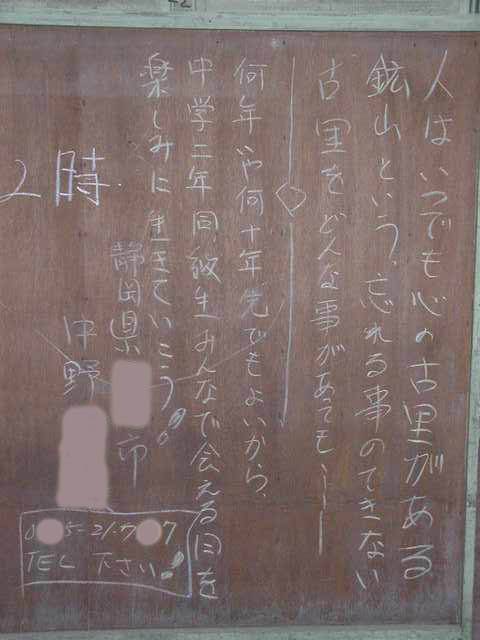 人はいつでも心の古里がある
鉱山という、忘れる事のできない
古里をどんな事があても──
何年いや何十年先でもよいから、
中学二年同級生みんなで会える日を
楽しみに生きていこう!
静岡県 市
中野
TEL 下さい!
2時.